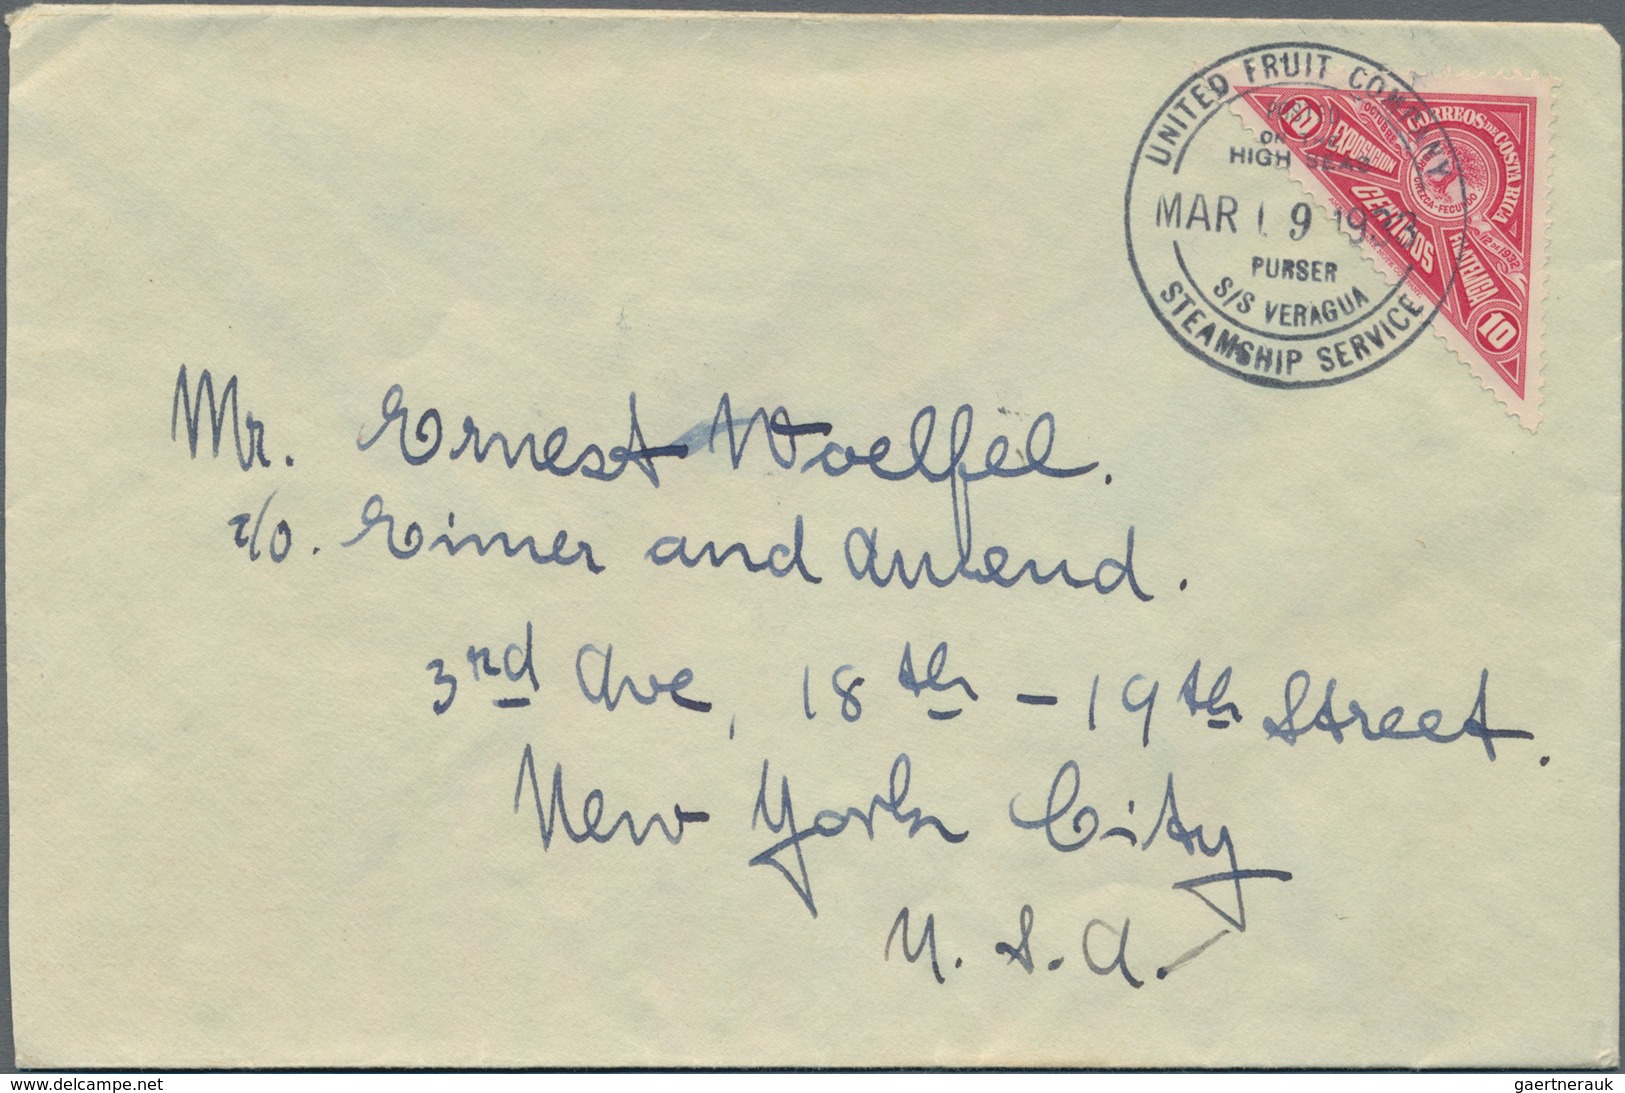 UNITED FRUIT COMPANY
HIGH SEAS
MAR 19
PURSER
S/S VERAGUA
STEAMSHIP SERVICE
CORREOS DE COSTA RICA
OCTUBRE 12 DE 1932
EXPOSICION FILATELICA
10 CENTIMOS 10
Mr. Ernest Woelfel.
c/o. Eimer and Amend.
3rd Ave, 18th - 19th Street.
New York City
U. S. A.
www.delcampe.net
gaertnerauk